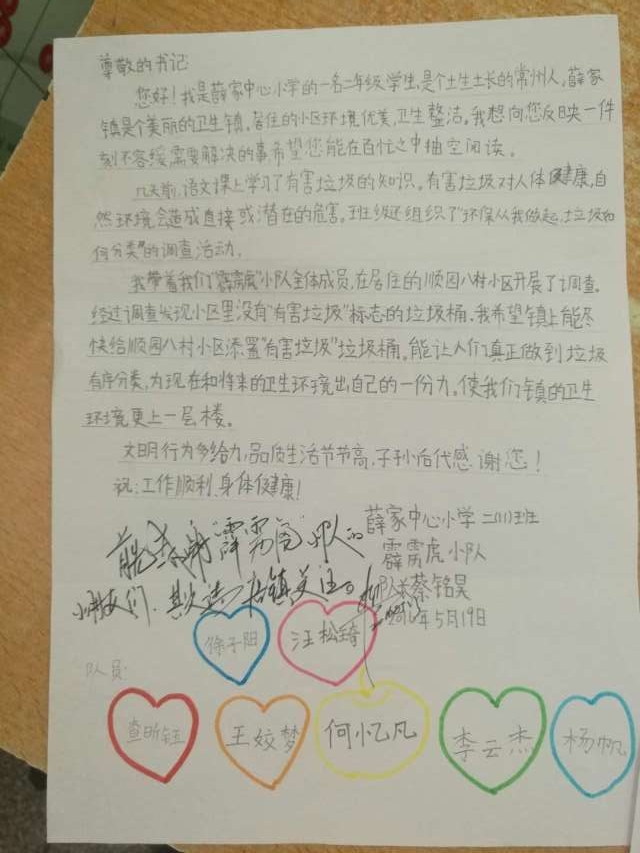 尊敬的书记:
您好!我是薛家中心小学的一名二年级学生,是个土生土长的常州人,薛家
镇是个美丽的卫生镇。居住的小区环境优美,卫生整洁。我想向您反映一件
刻不容缓需要解决的事希望您能在百忙之中抽空阅读。
几天前,语文课上学习了有害垃圾的知识。有害垃圾对人体健康,自
然环境会造成直接或潜在的危害。班级还组织了"环保从我做起,垃圾如
何分类"的调查活动。
我带着我们"霹雳虎"小队全体成员,在居住的顺园八村小区开展了调查。
经过调查发现小区里没有"有害垃圾"标志的垃圾桶。我希望镇上能尽
快给顺园八村小区添置"有害垃圾"垃圾桶。能让人们真正做到垃圾
有序分类,为现在和将来的卫生环境出自己的一份力。使我们镇的卫生
环境更上一层楼。
文明行为多给力,品质生活节节高,子孙后代感谢您!
祝:工作顺利,身体健康!
薛家中心小学 二(11)班
霹雳虎小队
队长:蔡铭昊
5月19日
感谢霹雳虎小队的
小朋友们.
徐子阳 汪松琦
队员:
查昕钰 王姣梦 何忆凡 李云杰 杨帆